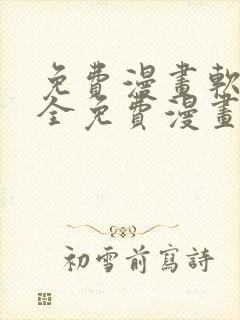 免費漫畫軟
全免費漫畫
初雪前寫詩